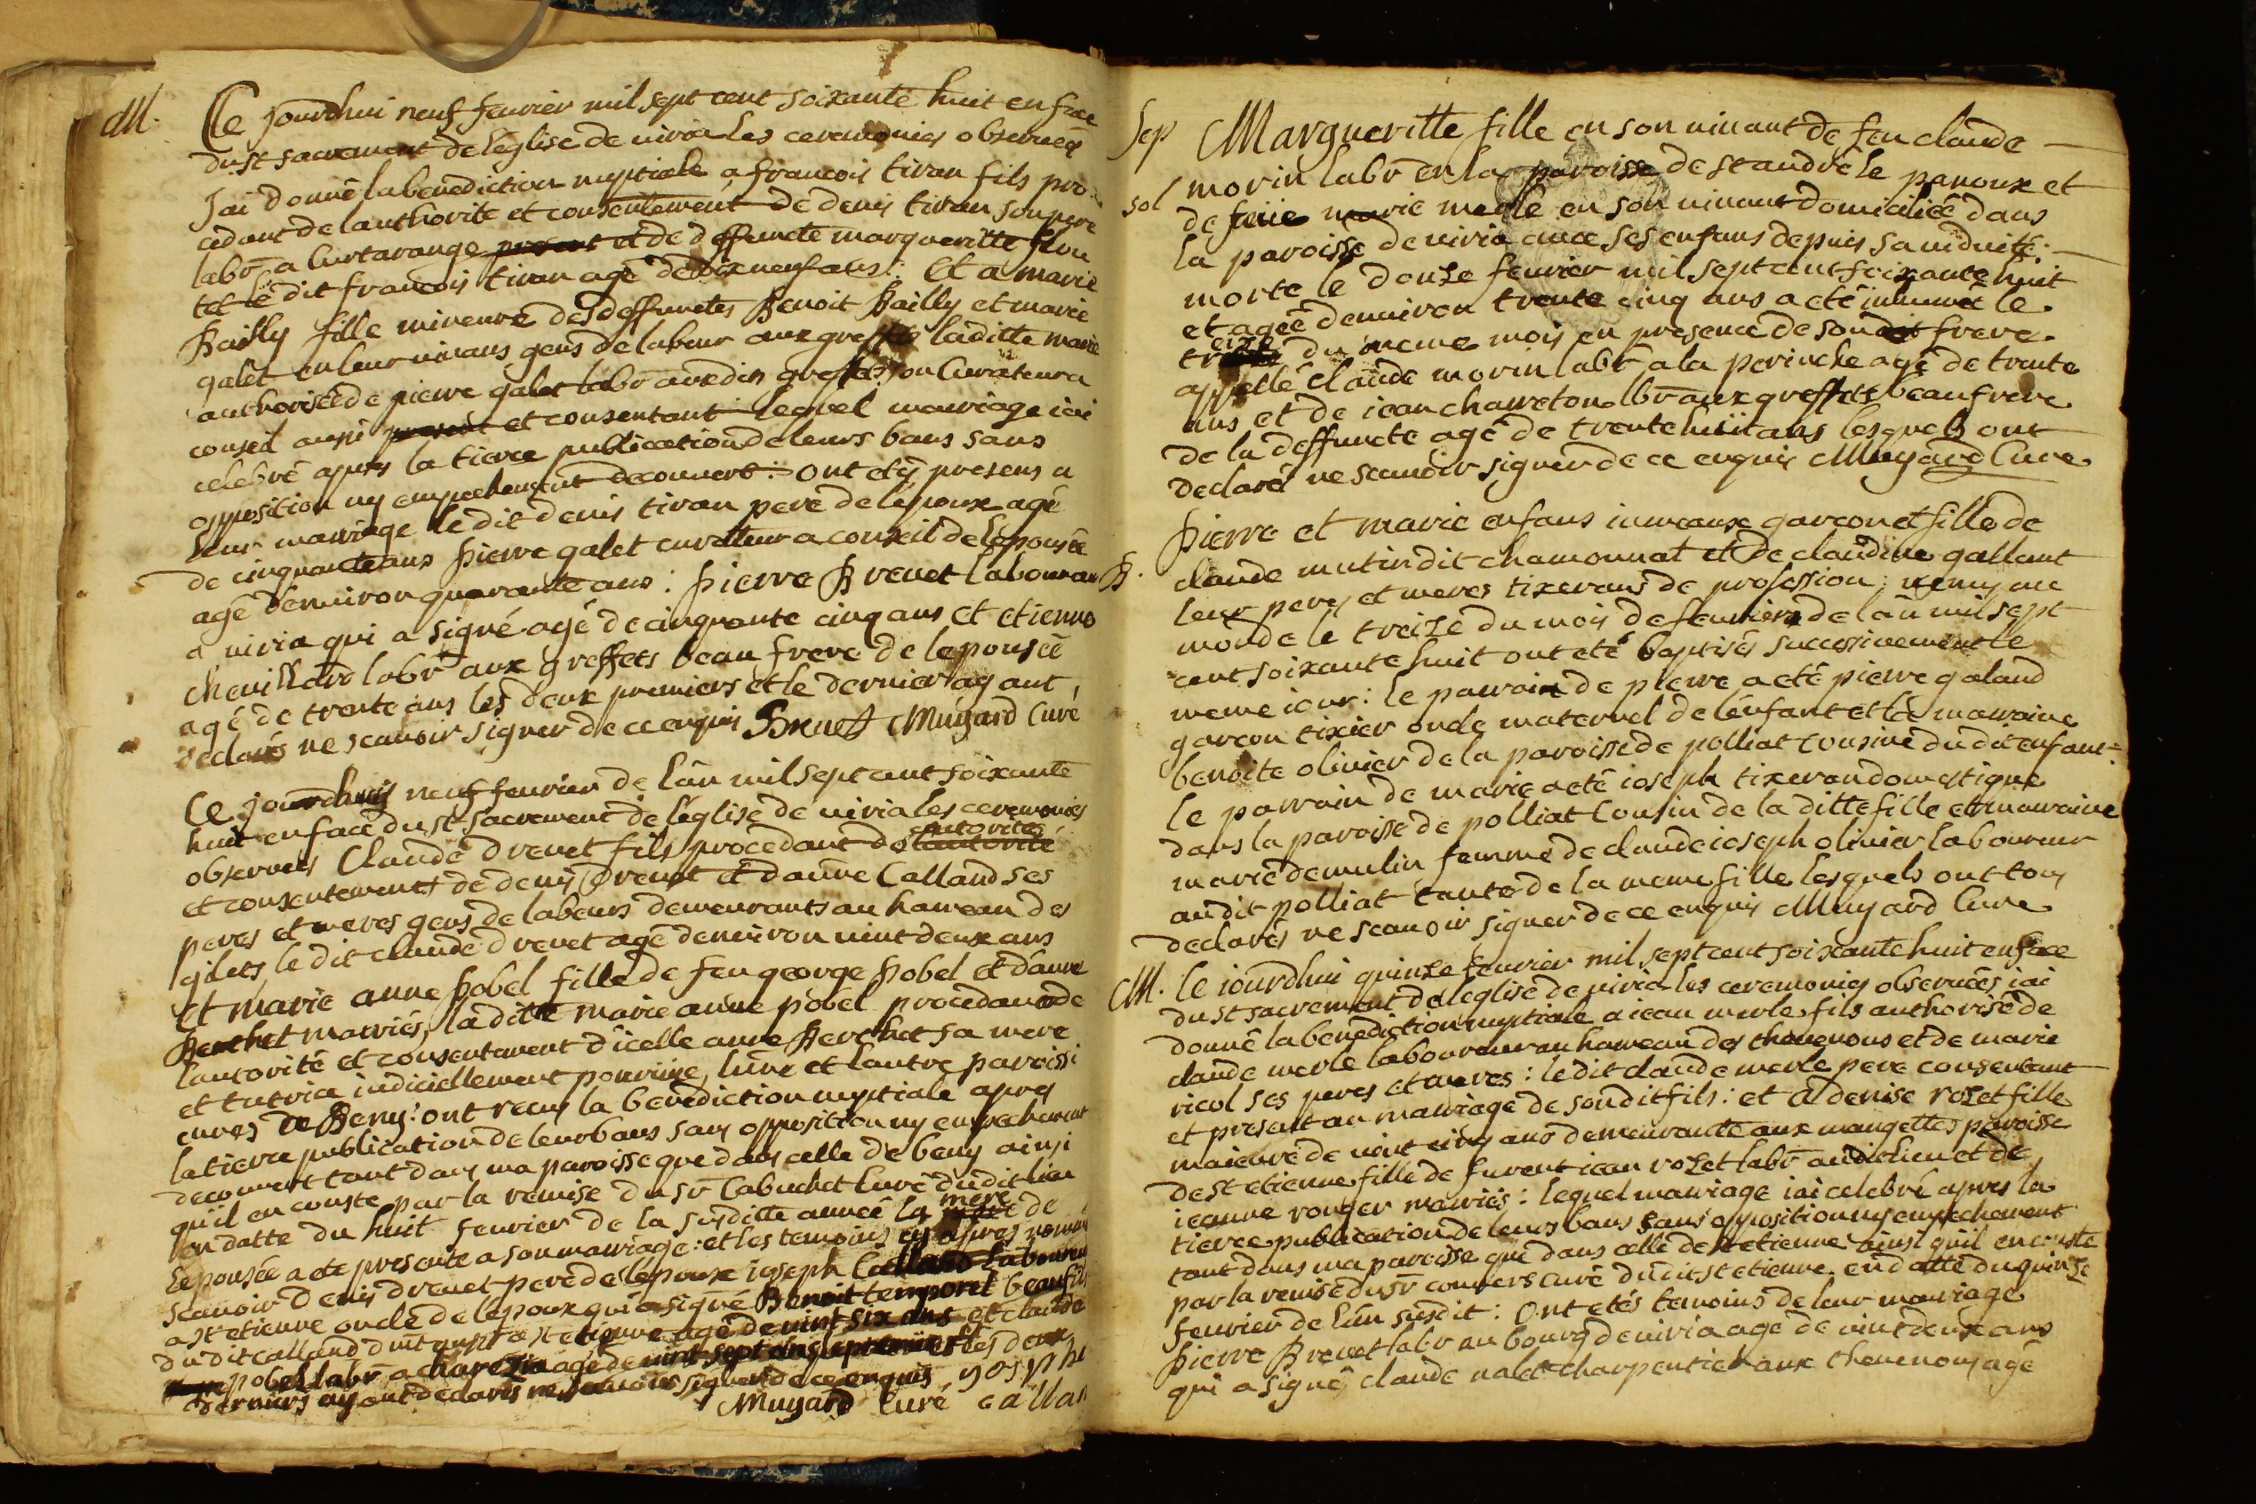 M. Ce jourdhui neuf fevrier mil sept cent soixante huit en face
du st sacrement de l'église de viria les ceremonies observeés
Jai donné la benediction nuptiale a francois tiran fils pro
cedant de lauthorité et consentement de denis tiran son pere
labr a Curtarange present et de deffuncte marguerite
le dit francois tiran agé de dix neuf ans : Et a marie
Bailly fille mineure des deffuncts Benoit Bailly et marie
galet en leur vivans gens de labeur aux greffets laditte marie
authorisée de pierre galet labr audis greffets son Curateur a
conseil aussi present et consentant lequel mariage iai
celebré apres la tierce publication de leurs bans sans
opposition ny empechement decouvert : ont etés presens a
leur mariage le dit denis tiran pere de lepoux agé
de cinquante ans pierre galet curateur a conseil de lepousée
agé denviron quarante ans : pierre Brevet laboureur
a viria qui a signé agé de cinquante cinq ans et etienne
chevillard labr aux greffets beau frere de lepousée
agé de trente ans les deux premiers et le dernier ayant
declarés ne scavoir signer de ce enquis Brevet Muyard Curé
Ce jourdhuy neuf fevrier de l'an mil sept cent soixante
huit en face du st sacrement de l'église de viria les ceremonies
observeés Claude drevet fils procedant de lautorité autorité
et consentement de denis Drevet et d'anne Calland ses
peres et meres gens de labeurs demeurants au hameau des
gilets le dit claude drevet agé denviron vint deux ans
et marie anne pobel fille de feu george pobel et d'anne
Berthet mariés, la ditte marie anne pobel procedant de
lautorité et consentement d'icelle anne Berthet sa mere
et tutrice iudiciellement pourvüe, lune et lautre paroissi
de Beny : ont reçus la benediction nuptiale apres
la tierce publication de leur bans sans opposition ny empechement
decouvert tant dans ma paroisse que dans celle de beny ainsi
qu'il en conste par la remise du sr Cabuchet Curé dudit lieu
en datte du huit fevrier de la susditte année la mere de
lepousée a eté presente a son mariage : et les temoins cy apres nommé
scavoir denis drevet pere de lepoux ioseph Calland Laboureur
a st etienne oncle de lepoux qui a signé Benoit temporel beaufils
du dit calland a st etienne agé de vint six ans et claude
pobel labr a agé de vint sept ans les deux
derniers ayant declarés ne scavoir signer de ce enquis yosephe
Muyard Curé callan
Sep Margueritte fille en son vivant de feu claude
morin labr en la paroisse de st andré le panoux et
sol de feüe marie merle en son vivant domiciliée dans
la paroisse de viria avec ses enfans depuis sa viduité.
morte le douze fevrier mil sept cent soixante huit
et agée denviron trente cinq ans a eté inhumée le
treize du meme mois en presence de son frere
appellé Claude morin labr a la perinche agé de trente
ans et de iean charreton lbr aux greffets beaufrere
de la deffuncte agé de trente huit ans lesquels ont
declaré ne scavoir signer de ce enquis Muyard Cure
B. pierre et marie enfans iumeaux garçon et fille de
claude mutin dit chamonnat et de claudine galland
leur peres et meres tixerans de profession ; venus au
monde le treize du mois de fevrier de l'an mil sept
cent soixante huit ont eté baptisés successivement le
meme iour : le parrain de pierre a eté pierre galand
garçon tixier oncle maternel de l'enfant et la marraine
benoite olivier de la paroisse de polliat cousine du dit enfant :
le parrain de marie a eté ioseph tixeran domestique
dans la paroisse de polliat Cousin de la ditte fille et marraine
marie demulin femme de claude ioseph olivier laboureur
audit polliat tante de la meme fille lesquels ont tous
declarés ne scavoir signer de ce enquis Muyard Cure
M. Ce iourdhui quinze fevrier mil sept cent soixante huit en face
du st sacrement de leglise de viria les ceremonies observeés iai
donné la benediction nuptiale a iean merle fils authorisé de
claude merle laboureur au hameau des et de marie
ricol ses peres et meres : le dit claude merle pere consentant
et present au mariage de son dit fils : et a denise rozet fille
maieure de vint cinq ans demeurante aux mangettes paroisse
de st etienne fille de furent iean rozet labr audit lieu et de
ieanne rouger mariés : lequel mariage iai celebré apres la
tierce publication de leurs bans sans opposition ny empechement
tant dans ma paroisse que dans celle de st etienne ainsi quil en conste
par la remise du sr convers curé dudit st etienne en datte du quinze
fevrier de l'an susdit : Ont etés temoins de leur mariage
pierre Brevet labr au bourg de viria agé de vint deux ans
qui a signé, claude nalet charpentier aux thevenons agé